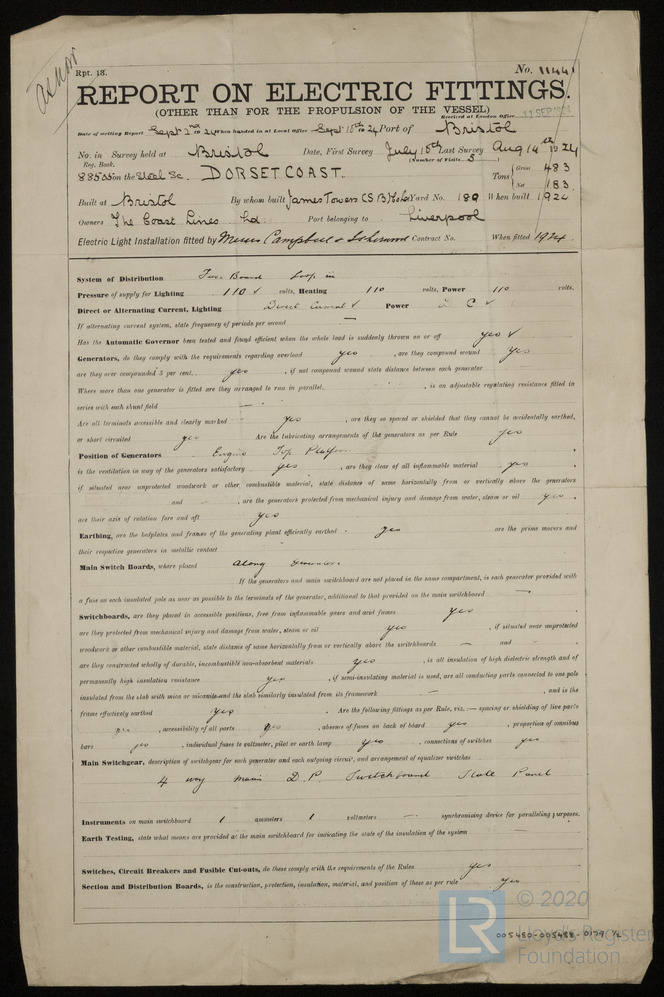 Rpt. 13.
No. 11441
REPORT ON ELECTRIC FITTINGS.
(OTHER THAN FOR THE PROPULSION OF THE VESSEL)
Received at London Office 12 SEP 1924
Date of writing Report Sept 2nd 1924 When handed in at Local Office Sept 10th 1924 Port of Bristol
No. in Survey held at Bristol Date, First Survey July 16th Last Survey Aug 14th 1924
Reg. Book. (Number of Visits 5)
88500 on the Steel Sc. DORSET COAST. Tons { Gross 483
Net 183
Built at Bristol By whom built James Towers (S.B.) Yard No. 189 When built 1924
Owners The Coast Lines Ld Port belonging to Liverpool
Electric Light Installation fitted by Messrs Campbell & Isherwood Contract No. When fitted 1924
System of Distribution Two Board Loop in
Pressure of supply for Lighting 110 volts, Heating 110 volts, Power 110 volts.
Direct or Alternating Current, Lighting Direct Current Power D C
If alternating current system, state frequency of periods per second —
Has the Automatic Governor been tested and found efficient when the whole load is suddenly thrown on or off yes
Generators, do they comply with the requirements regarding overload yes , are they compound wound yes
are they over compounded 5 per cent. yes , if not compound wound state distance between each generator
Where more than one generator is fitted are they arranged to run in parallel , is an adjustable regulating resistance fitted in
series with each shunt field —
Are all terminals accessible and clearly marked yes , are they so spaced or shielded that they cannot be accidentally earthed,
or short circuited yes Are the lubricating arrangements of the generators as per Rule yes
Position of Generators Engine Top Platform
is the ventilation in way of the generators satisfactory yes , are they clear of all inflammable material yes
if situated near unprotected woodwork or other combustible material, state distance of same horizontally from or vertically above the generators
and — , are the generators protected from mechanical injury and damage from water, steam or oil yes
are their axis of rotation fore and aft yes
Earthing, are the bedplates and frames of the generating plant efficiently earthed yes are the prime movers and
their respective generators in metallic contact
Main Switch Boards, where placed Along Generators
If the generators and main switchboard are not placed in the same compartment, is each generator provided with
a fuse on each insulated pole as near as possible to the terminals of the generator, additional to that provided on the main switchboard —
Switchboards, are they placed in accessible positions, free from inflammable gases and acid fumes yes
are they protected from mechanical injury and damage from water, steam or oil yes , if situated near unprotected
woodwork or other combustible material, state distance of same horizontally from or vertically above the switchboards — and —
are they constructed wholly of durable, incombustible non-absorbent materials yes , is all insulation of high dielectric strength and of
permanently high insulation resistance yes , if semi-insulating material is used, are all conducting parts connected to one pole
insulated from the slab with mica or micanite and the slab similarly insulated from its framework — , and is the
frame effectively earthed yes . Are the following fittings as per Rule, viz.:— spacing or shielding of live parts
yes , accessibility of all parts yes , absence of fuses on back of board yes , proportion of omnibus
bars yes , individual fuses to voltmeter, pilot or earth lamp yes , connections of switches yes
Main Switchgear, description of switchgear for each generator and each outgoing circuit, and arrangement of equalizer switches
4 way main D.P Switchboard Slate Panel
Instruments on main switchboard 1 ammeters 1 voltmeters — synchronising device for paralleling purposes.
Earth Testing, state what means are provided at the main switchboard for indicating the state of the insulation of the system
Switches, Circuit Breakers and Fusible Cut-outs, do these comply with the requirements of the Rules yes
Section and Distribution Boards, is the construction, protection, insulation, material, and position of these as per rule yes
LR © 2020
Lloyd's Register
Foundation
005480-005488-0179 1/2